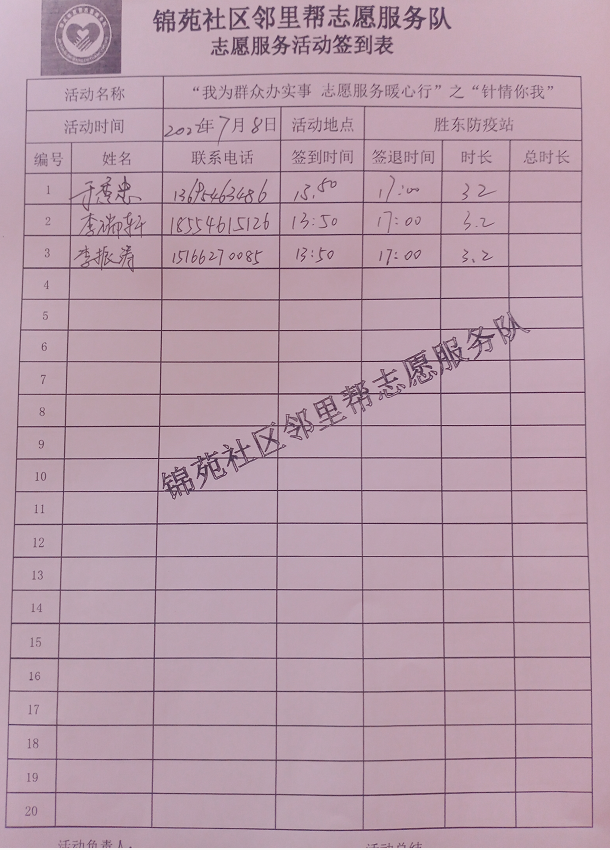 锦苑社区邻里帮志愿服务队
志愿服务活动签到表
活动名称 “我为群众办实事 志愿服务暖心行”之“针情你我”
活动时间 7月8日 活动地点 胜东防疫站
编号 姓名 联系电话 签到时间 签退时间 时长 总时长
1 13695463486 13:50 17:00 3.2
2 李瑞轩 18554615126 13:50 17:00 3.2
3 李振涛 15166270085 13:50 17:00 3.2
4
5
6
7
8
9
10
11
12
13
14
15
16
17
18
19
20
锦苑社区邻里帮志愿服务队
活动负责人: 活动总结